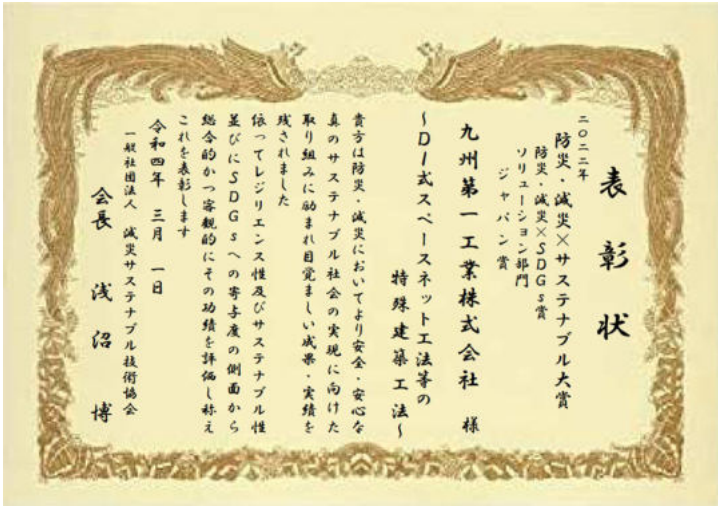 表彰状
二〇二二年
防災・減災×サステナブル大賞
防災・減災×SDGs賞
ソリューション部門
ジャパン賞
九州第一工業株式会社 様
~DI式スペースネット工法等の
特殊建築工法~
貴方は防災・減災においてより安全・安心な
真のサステナブル社会の実現に向けた
取り組みに励まれ目覚ましい成果・実績を
残されました
依ってレジリエンス性及びサステナブル性
並びにSDGsへの寄与度の側面から
総合的かつ客観的にその功績を評価し称え
これを表彰します
令和四年 三月 一日
一般社団法人 減災サステナブル技術協会
会長 浅沼 博